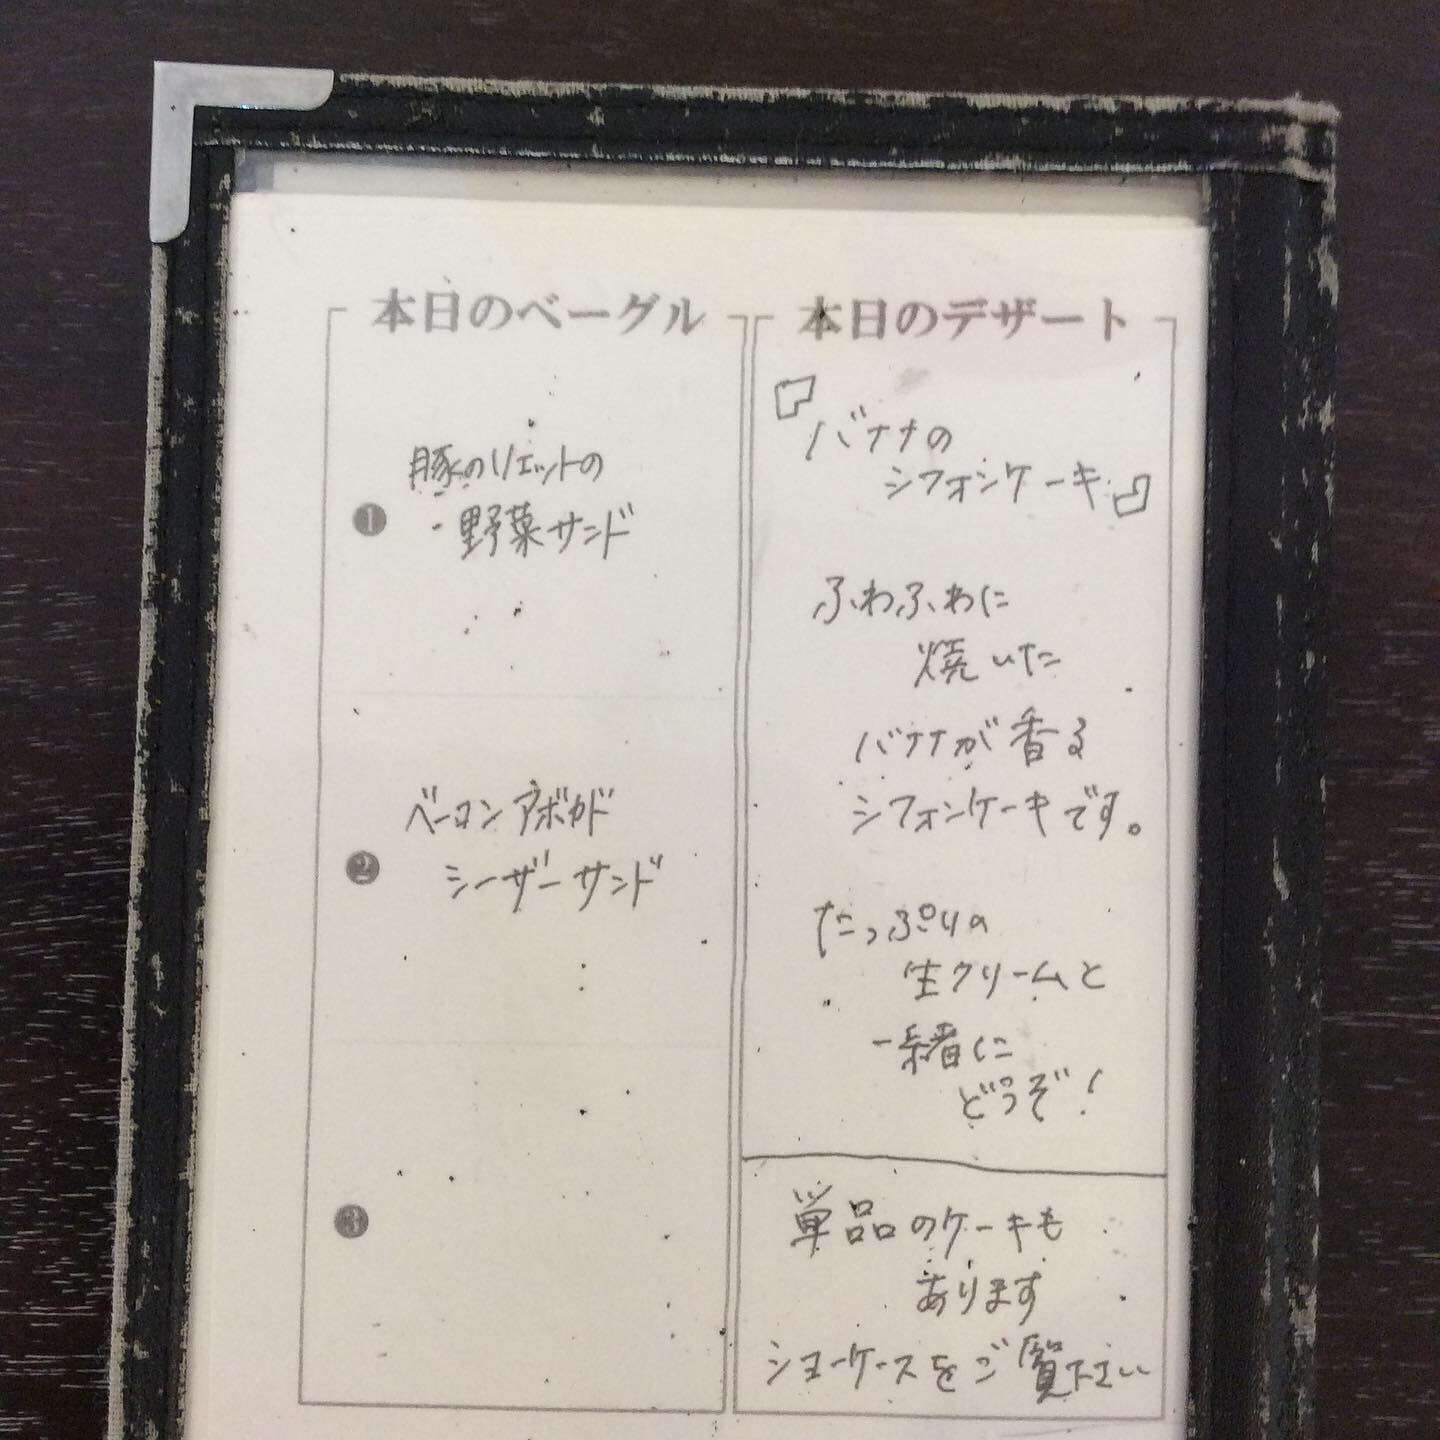 本日のベーグル
❶
豚のリエットの
野菜サンド
❷
ベーコンアボカド
シーザーサンド
❸
本日のデザート
『バナナの
シフォンケーキ』
ふわふわに
焼いた
バナナが香る
シフォンケーキです。
たっぷりの
生クリームと
一緒に
どうぞ!
単品のケーキも
あります
ショーケースをご覧下さい